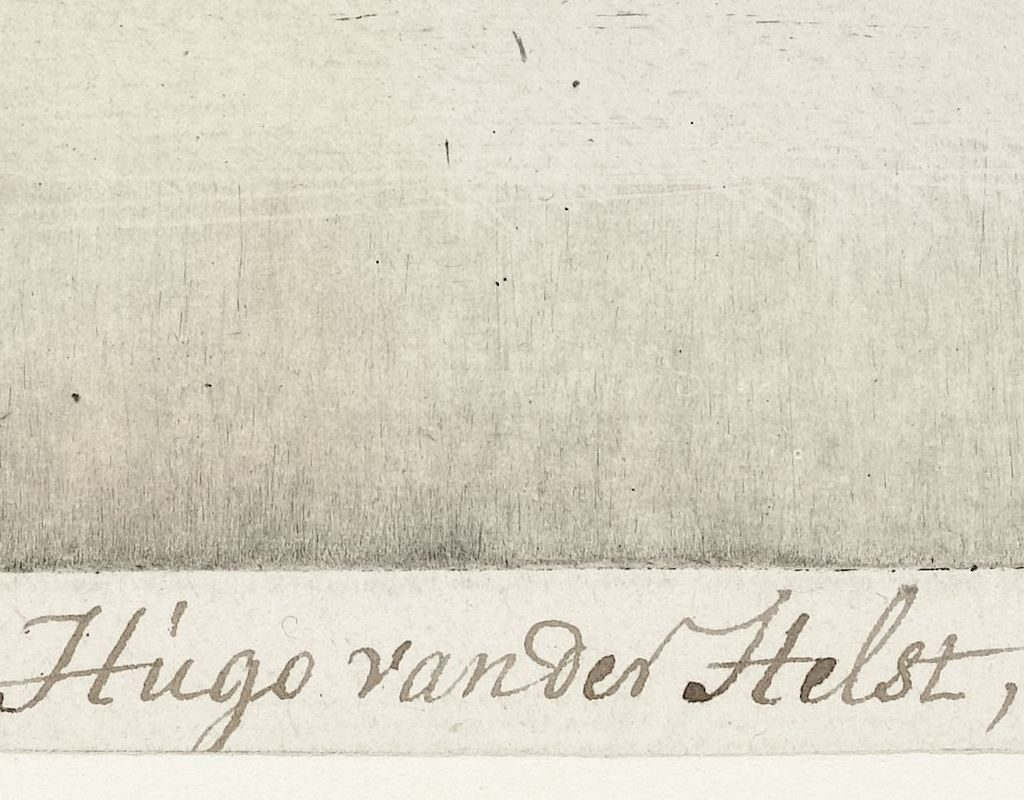 Hugo vander Helst,